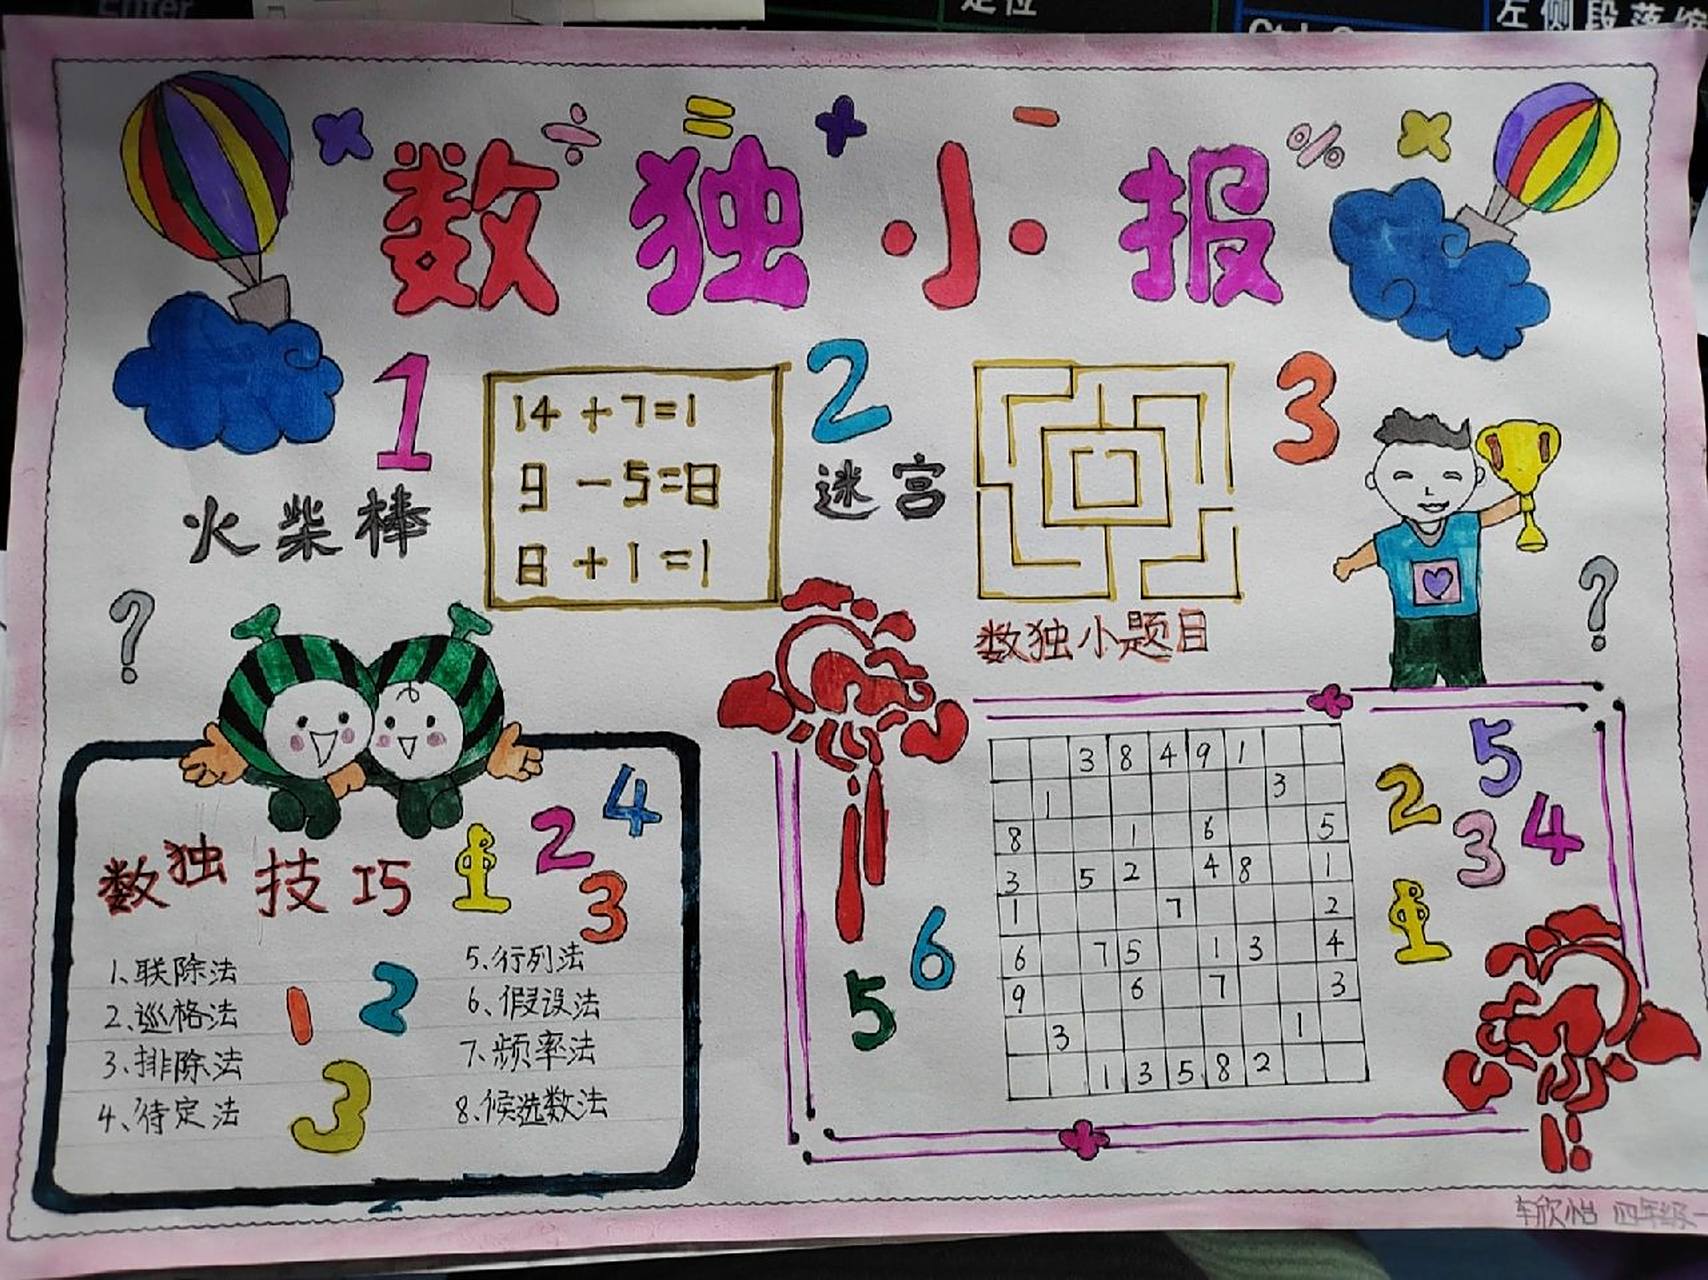 Enter
定位
左侧段落缩
× ÷ = + - % ×
数独小报
1
火柴棒
14+7=1
9-5=8
8+1=1
2
迷宫
3
?
?
数独小题目
数独技巧
1 2 3 4
1、联除法
2、巡格法
3、排除法
4、待定法
1 2 3
5、行列法
6、假设法
7、频率法
8、候选数法
3 8 4 9 1
1 3
8 1 6 5
3 5 2 4 8 1
1 7 2
6 7 5 1 3 4
9 6 7 3
3 1
1 3 5 8 2
5 6
2 5 3 4 1
车欣怡 四年级